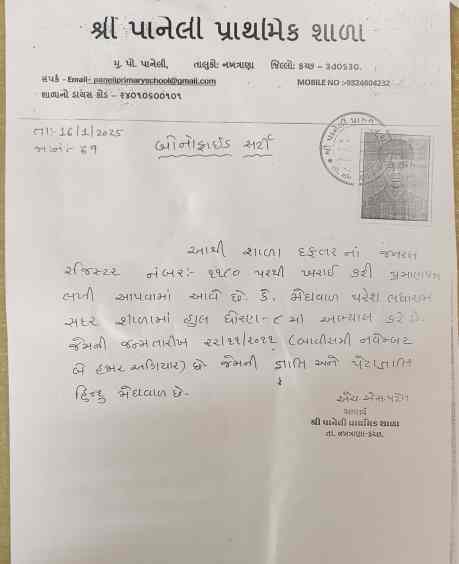 શ્રી પાનેલી પ્રાથમિક શાળા
મુ. પો. પાનેલી, તાલુકો: નખત્રાણા જિલ્લો: કચ્છ – ૩૭૦૬૩૦.
સંપર્ક - Email:- paneliprimaryschool@gmail.com MOBILE NO :-9824604232
શાળાનો ડાયસ કોડ – ૨૪૦૧૦૬૦૦૧૦૧
તા:- 16/1/2025
જા.નં:- ૬૧
બોનોફાઈડ સર્ટી
આથી શાળા દફતર નાં જનરલ
રજિસ્ટર નંબર:- ૧૧૮૦ પરથી ખરાઈ કરી પ્રમાણપત્ર
લખી આપવામાં આવે છે. કે, મેઘવાળ પરેશ લધારામ
સદર શાળામાં હાલ ધોરણ-૮ માં અભ્યાસ કરે છે.
જેમની જન્મતારીખ ૨૨/૧૧/૨૦૧૧ (બાવીસમી નવેમ્બર
બે હજાર અગિયાર) છે જેમની જ્ઞાતિ અને પેટાજ્ઞાતિ
હિન્દુ મેઘવાળ છે.
આચાર્ય
શ્રી પાનેલી પ્રાથમિક શાળા
તા. નખત્રાણા-કચ્છ.